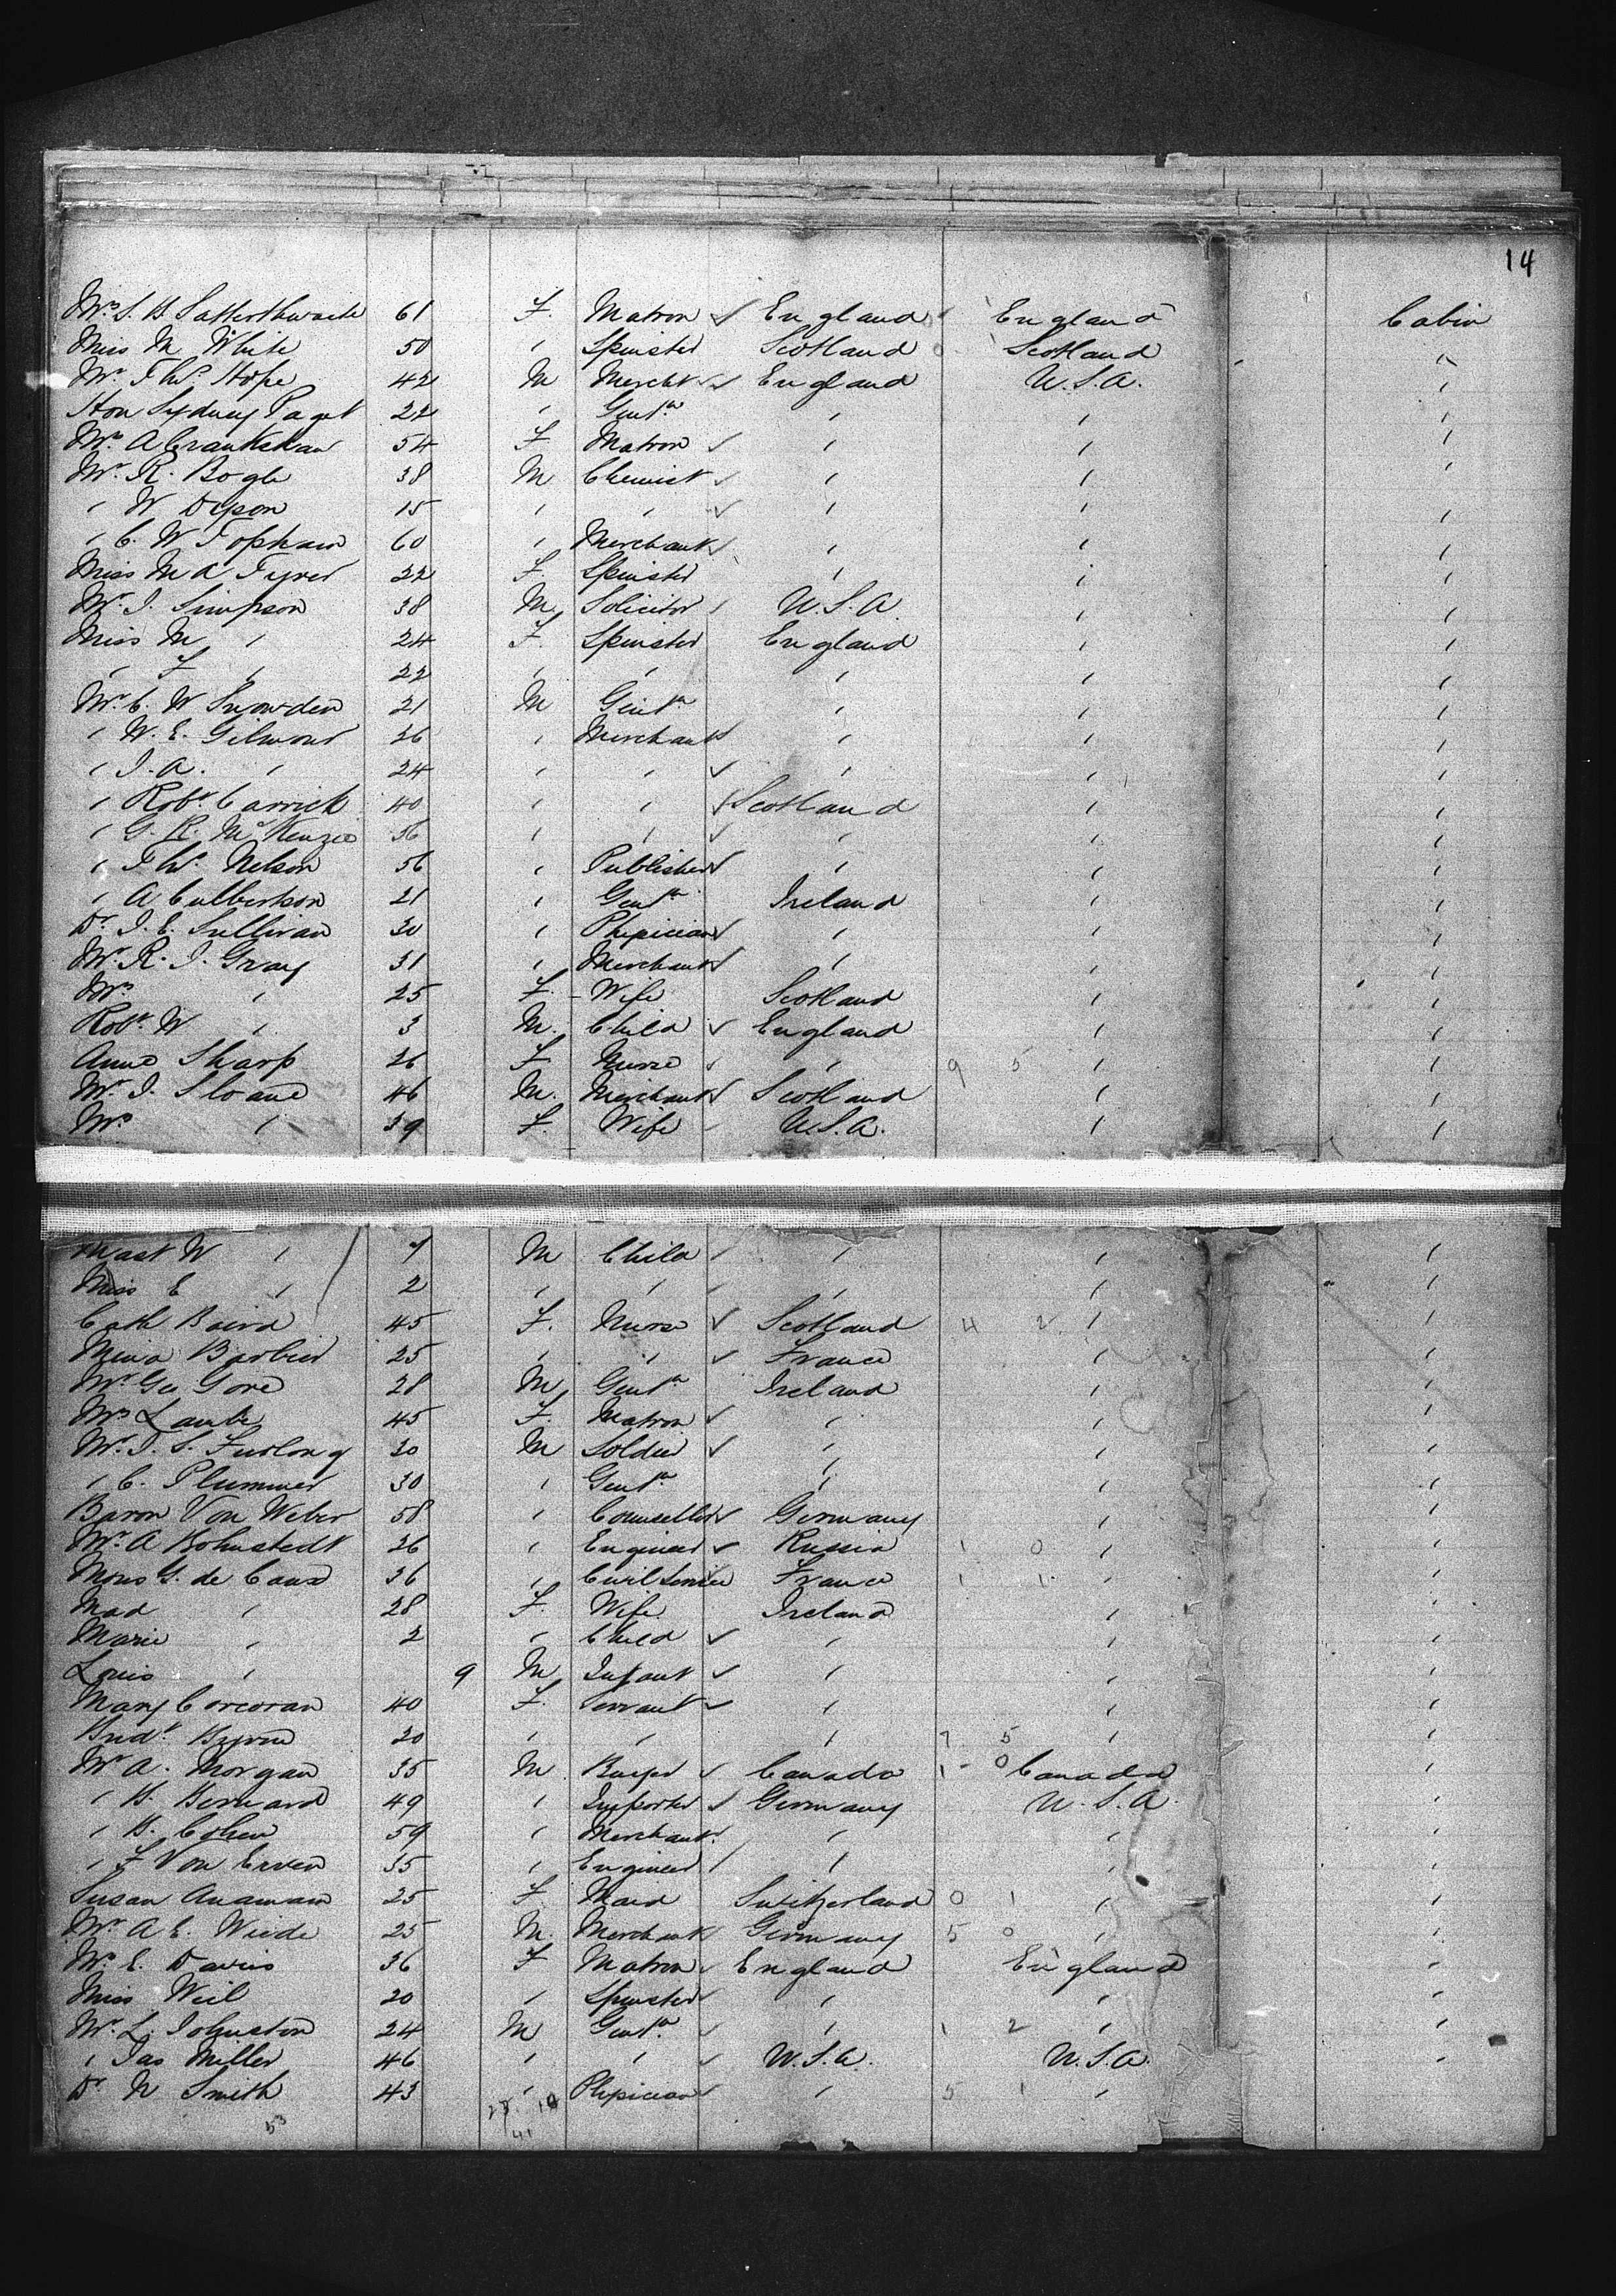 14
Mrs. S. B. Satterthwaite 61 F. Matron ✓ England England Cabin
Miss M White 50 " Spinster Scotland Scotland "
Mr. Thos. Hope 42 M Mercht ✓ England U.S.A. "
Hon Sydney Paget 22 " Gentn " " "
Mrs. A Crankshaw 54 F Matron ✓ " " "
Mr. R. Bogle 38 M Chemist ✓ " " "
" W Dyson 15 " " ✓ " " "
" C. W Topham 60 " Merchant ✓ " " "
Miss M A Tyrer 22 F Spinster " " "
Mr. J. Simpson 38 M Solicitor U.S.A " "
Miss M " 24 F. Spinster England " "
" F " 22 " " " " "
Mr. C. W Snowden 21 M Gentn " " "
" W. E. Gilmour 26 " Merchant ✓ " " "
" J. A. " 24 " " ✓ " " "
" Robt. Carrick 40 " " ✓ Scotland " "
" G. R. McKenzie 56 " " ✓ " " "
" Thos. Nelson 56 " Publisher ✓ " " "
" A Culbertson 21 " Gentn Ireland " "
Dr. J. E. Sullivan 30 " Physician ✓ " " "
Mr. R. J. Gray 31 " Merchant ✓ " " "
Mrs " 25 F. Wife Scotland " "
Robt. W " 3 M. Child ✓ England " "
Anne Sharp 26 F Nurse ✓ " 9 5 " "
Mr. J. Sloane 46 M. Merchant ✓ Scotland " "
Mrs " 39 F. Wife U.S.A. " "
Mast W " 7 M Child " " "
Miss E " 2 " " " " "
Cath Baird 45 F. Nurse ✓ Scotland 4 2 " "
Barbier 25 " " ✓ France " "
Mr Geo Gore 28 M Gentn Ireland " "
Mrs Lambe 45 F. Matron ✓ " " "
Mr. J. S. Furlong 30 M Soldier ✓ " " "
" C. Plummer 30 " Gentn " " "
Baron Von Weber 58 " Counsellor ✓ Germany " "
Mr. A Bohnstedt 26 " Engineer ✓ Russia 1 0 " "
Mons G. de Caux 36 " Civil Service France 1 1 " "
Mad " 28 F. Wife Ireland " "
Marie " 2 " Child ✓ " " "
Louis " 9 M Infant ✓ " " "
Mary Corcoran 40 F. Servant ✓ " " "
Bridt. Byrne 20 " " " 7 5 " "
Mr A. Morgan 35 M Buyer ✓ Canada 1 0 Canada "
" B. Bernard 49 " Importer ✓ Germany U.S.A. "
" B. Cohen 59 " Merchant " " "
" F Von Erven 35 " Engineer " " "
Susan 25 F Maid Switzerland 0 1 " "
Mr A E. Weide 25 M. Merchant Germany 5 0 " "
Mrs. E. Davis 36 F Matron ✓ England England "
Miss Weil 20 " Spinster ✓ " " "
Mr. L. Johnston 24 M Gentn. ✓ " 1 2 " "
" Jas Miller 46 " " ✓ U.S.A. U.S.A. "
Dr. N Smith 43 " Physician ✓ " 5 1 " "
53 41